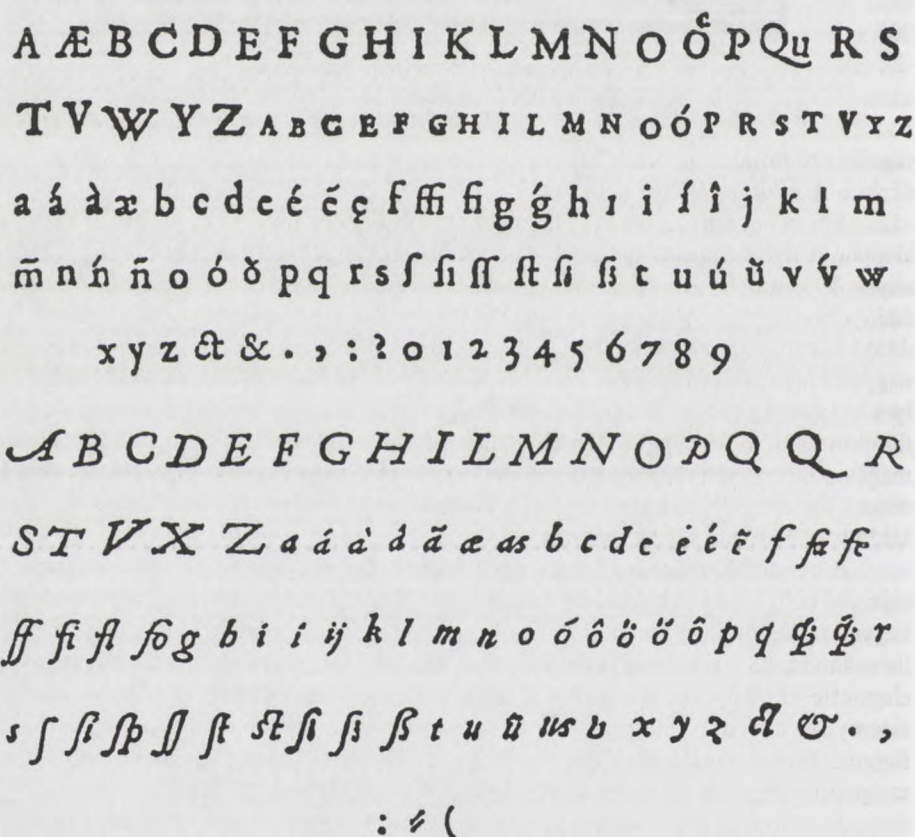 A Æ B C D E F G H I K L M N O Oͨ P Qu R S
T V W Y Z A B C E F G H I L M N O Ó P R S T V Y Z
a á à æ b c d e é ẽ ę f ffi fi g ǵ h ı i í î j k l m
m̃ n ń ñ o ó ò p q r s ſ ſi ſſ ſt ſi ſi t u ú ü v v́ w
x y z ct & . , : ? 0 1 2 3 4 5 6 7 8 9
A B C D E F G H I L M N O P Q Q R
S T V X Z a á à â ã æ as b c d e ė é ẽ f fa fe
ff fi fl fo g h i í ij k l m n o ó ô ö ő ô p q r
s ſ ſi ſp ſſ ſt st ſi ſi ß t u ũ us v x y z ct & . ,
: ⸗ (